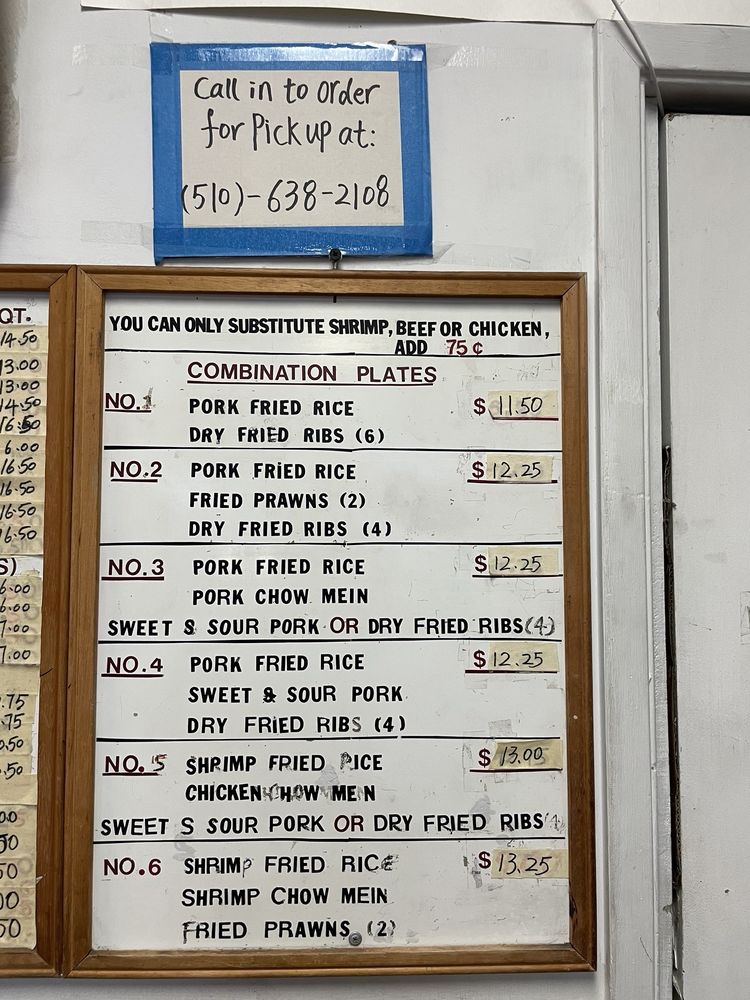 Call in to order
for Pick up at:
(510)-638-2108
QT.
14.50
13.00
13.00
14.50
16.50
6.00
16.50
16.50
16.50
16.50
S)
6.00
6.00
7.00
7.00
.75
.75
0.50
.50
00
50
50
00
50
YOU CAN ONLY SUBSTITUTE SHRIMP, BEEF OR CHICKEN,
ADD 75¢
COMBINATION PLATES
NO.1 PORK FRIED RICE $ 11.50
DRY FRIED RIBS (6)
NO.2 PORK FRIED RICE $ 12.25
FRIED PRAWNS (2)
DRY FRIED RIBS (4)
NO.3 PORK FRIED RICE $ 12.25
PORK CHOW MEIN
SWEET & SOUR PORK OR DRY FRIED RIBS (4)
NO.4 PORK FRIED RICE $ 12.25
SWEET & SOUR PORK
DRY FRIED RIBS (4)
NO.5 SHRIMP FRIED RICE $ 13.00
CHICKEN CHOW MEIN
SWEET S SOUR PORK OR DRY FRIED RIBS
NO.6 SHRIMP FRIED RICE $ 13.25
SHRIMP CHOW MEIN
FRIED PRAWNS (2)